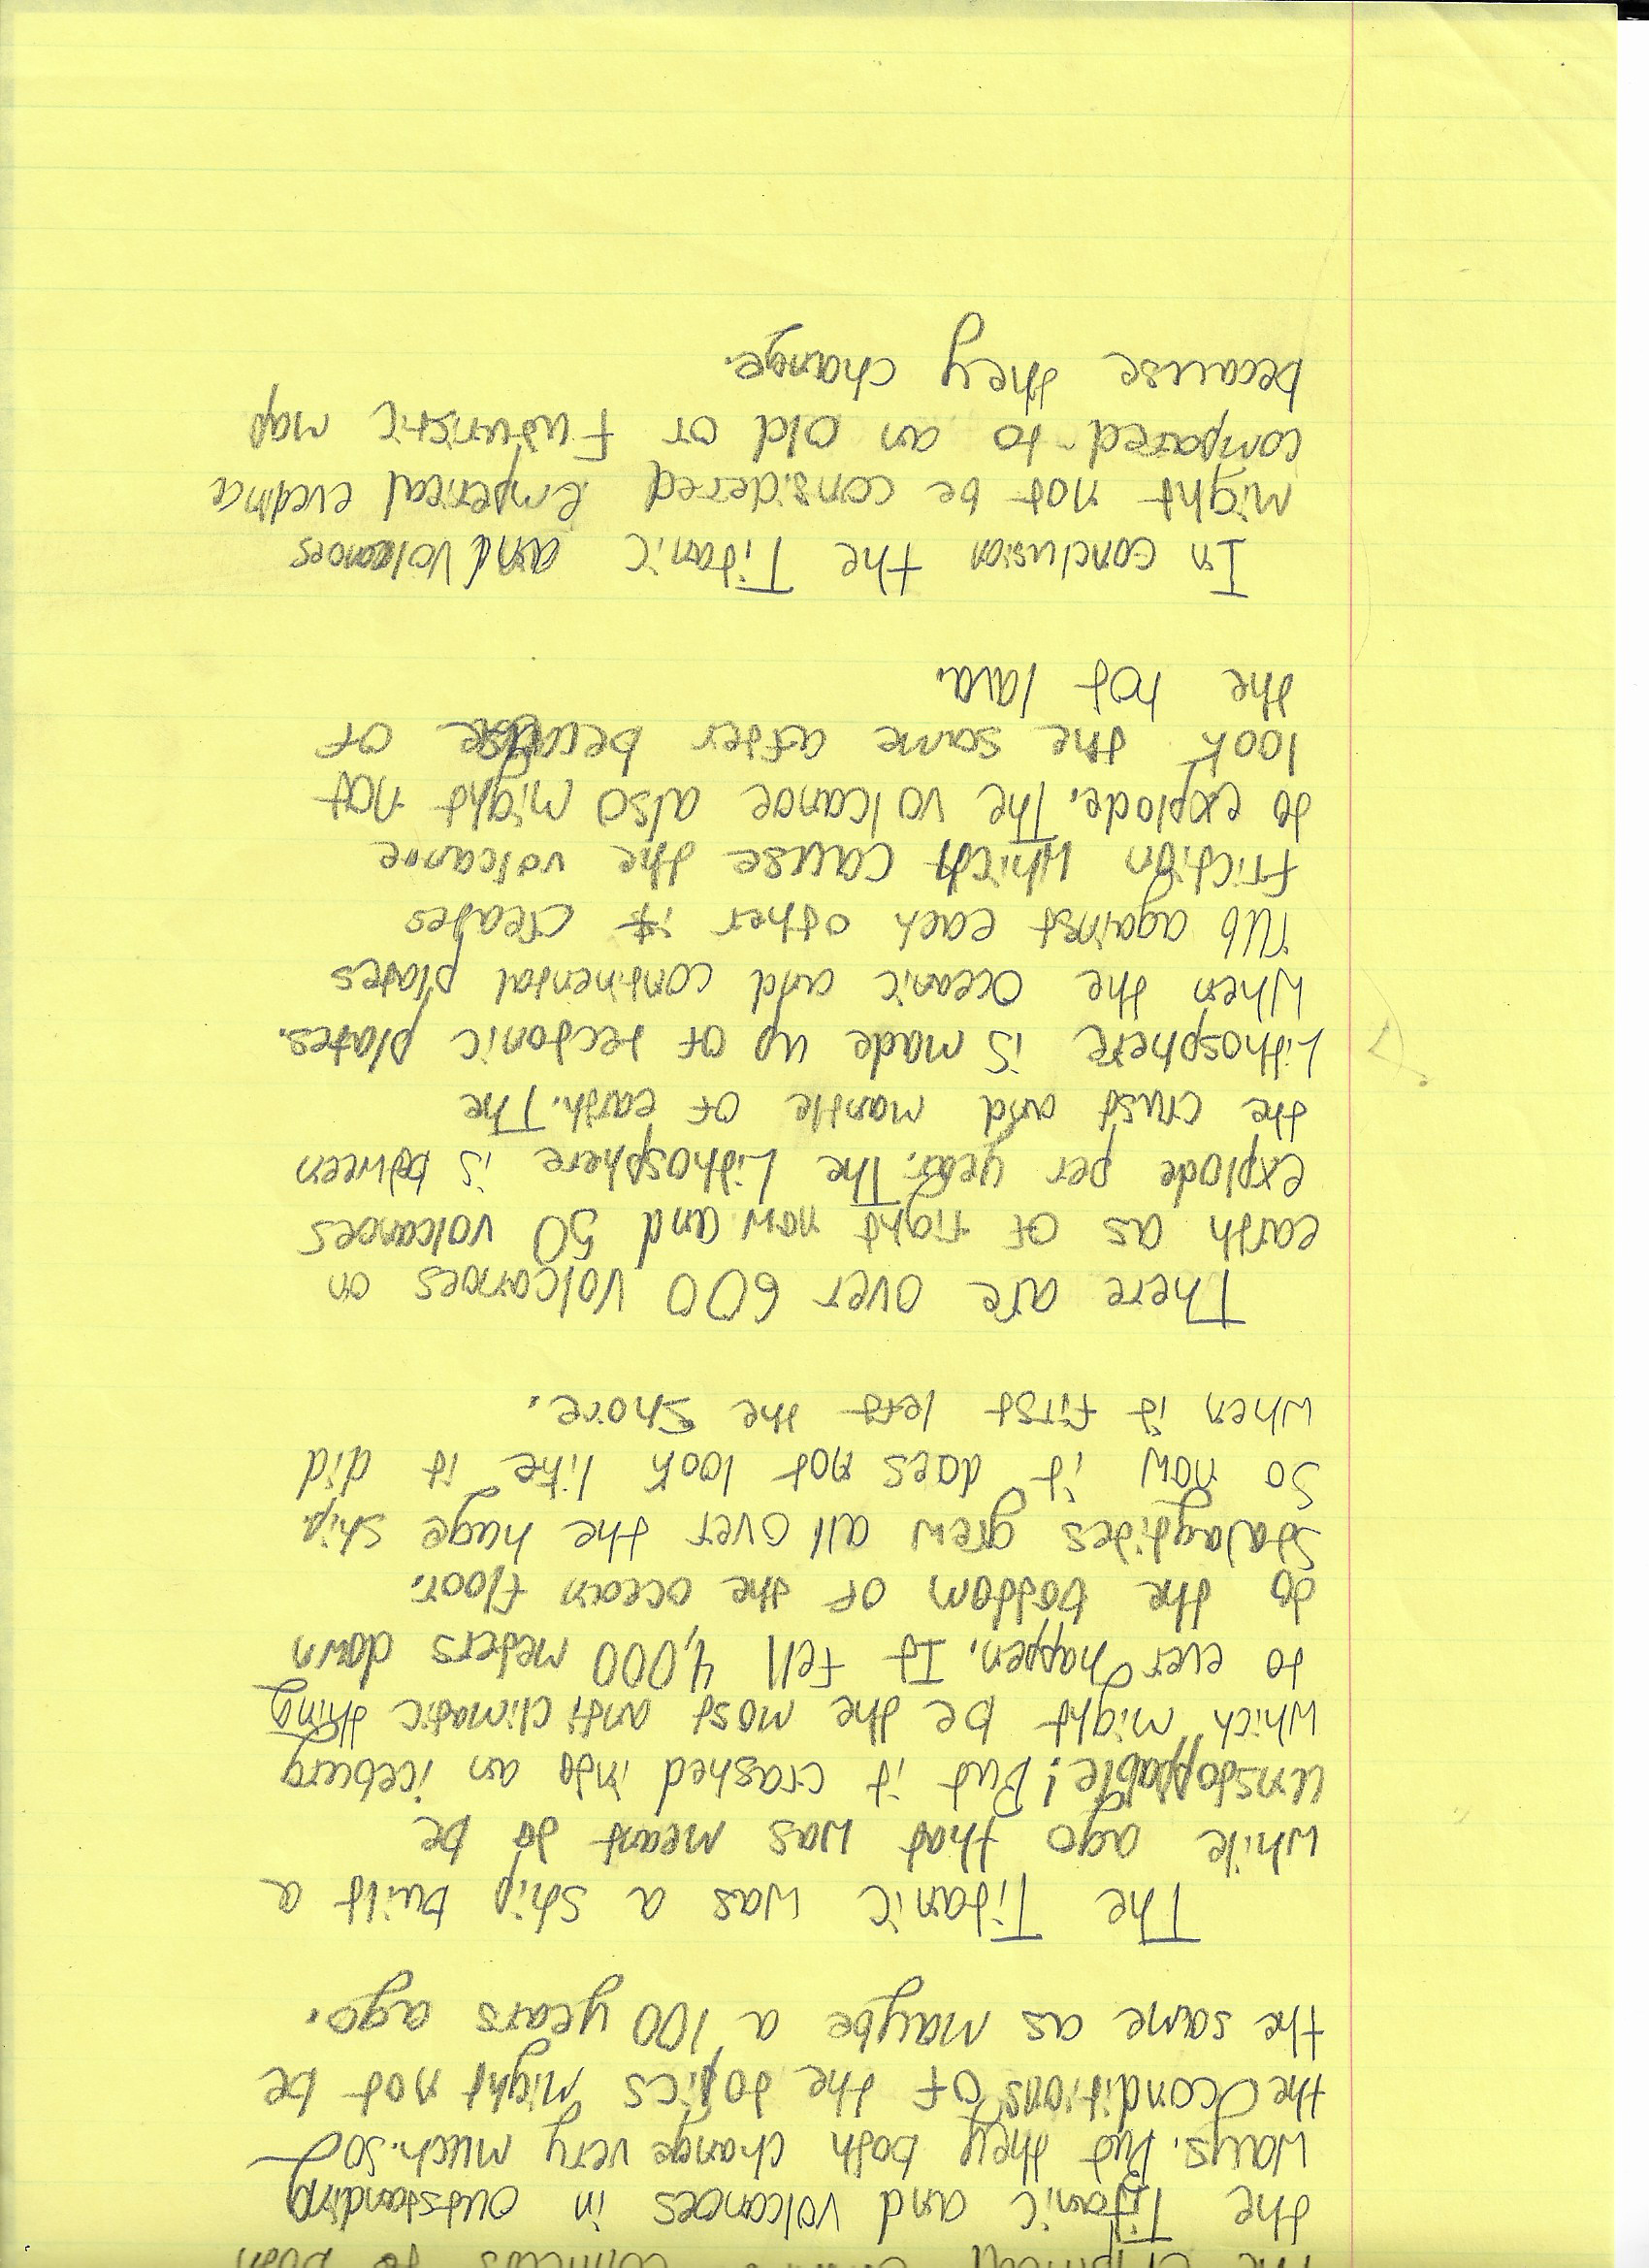 the Titanic and volcanoes in outstanding
ways. But they both change very much. So
the conditions of the topics might not be
the same as maybe a 100 years ago.
The Titanic was a ship built a
while ago that was meant to be
unstoppable! But it crashed into an iceburg
which might be the most anti climatic thing
to ever happen. It fell 4,000 meters down
to the bottom of the ocean floor.
Stalagtites grew all over the huge ship
so now it does not look like it did
when it first left the shore.
There are over 600 volcanoes on
earth as of right now and 50 volcanoes
explode per year. The Lithosphere is between
the crust and mantle of earth. The
Lithosphere is made up of tectonic plates.
When the oceanic and continental plates
rub against each other it creates
friction which cause the volcanoe
to explode. The volcanoe also might not
look the same after because of
the hot lava.
In conclusion the Titanic and volcanoes
might not be considered emperical
compared to an old or futuristic map
because they change.